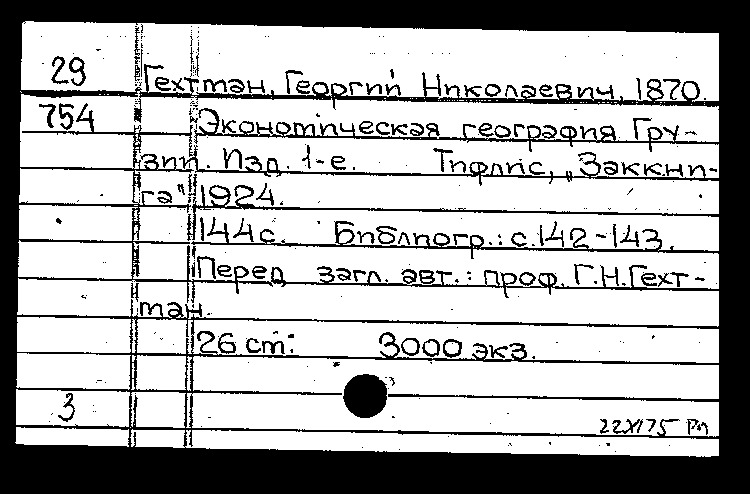 29 Гехтман, Георгий Николаевич, 1870.
754 Экономическая география Гру-
зии. Изд. 1-е. Тифлис, „Заккни-
га" 1924.
144 с. Библиогр.: с. 142-143.
Перед загл. авт.: проф. Г.Н. Гехт-
ман.
26 см. 3000 экз.
3